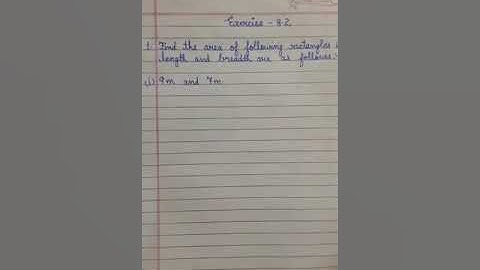 Exercise - 8.2
1. Find the area of following rectangles
length and breadth are as follows:-
(i) 9m and 7m